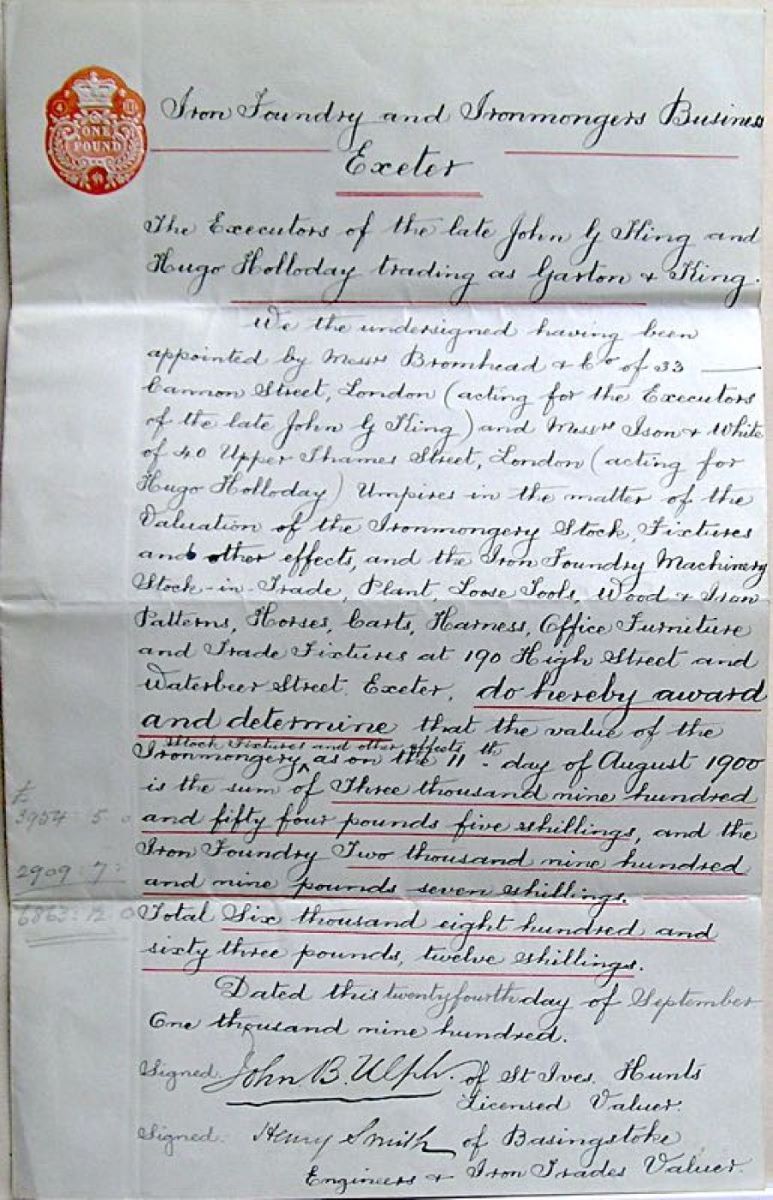 ONE
POUND
Iron Foundry and Ironmongers Business
Exeter
The Executors of the late John G King and
Hugo Holloday trading as Garton & King.
We the undersigned having been
appointed by Messrs Bromhead & Co of 33
Cannon Street, London (acting for the Executors
of the late John G King) and Messrs Ison & White
of 40 Upper Thames Street, London (acting for
Hugo Holloday) Umpires in the matter of the
Valuation of the Ironmongery Stock, Fixtures
and other effects, and the Iron Foundry Machinery
Stock-in-Trade, Plant, Loose Tools, Wood & Iron
Patterns, Horses, Carts, Harness, Office Furniture
and Trade Fixtures at 190 High Street and
Waterbeer Street. Exeter, do hereby award
and determine that the value of the
Stock Fixtures and other effects
Ironmongery ^ as on the 11th day of August 1900
is the sum of Three thousand nine hundred
£
3954 : 5 : 0
and fifty four pounds five shillings, and the
Iron Foundry Two thousand nine hundred
2909 : 7 :
and nine pounds seven shillings.
6863 : 12 : 0
Total Six thousand eight hundred and
sixty three pounds, twelve shillings.
Dated this twenty fourth day of September
One thousand nine hundred.
Signed. John B. Ulph. of St Ives. Hunts
Licensed Valuer.
Signed. Henry Smith of Basingstoke
Engineers & Iron Trades Valuer.